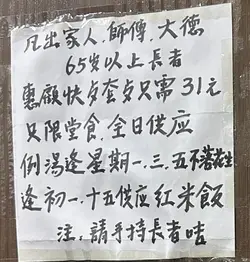 凡出家人.師傅.大德
65岁以上長者
惠顧快歺套歺只需31元
只限堂食.全日供应
例湯逢星期一.三.五不落花生
逢初一.十五供应紅米飯
注,請手持長者咭